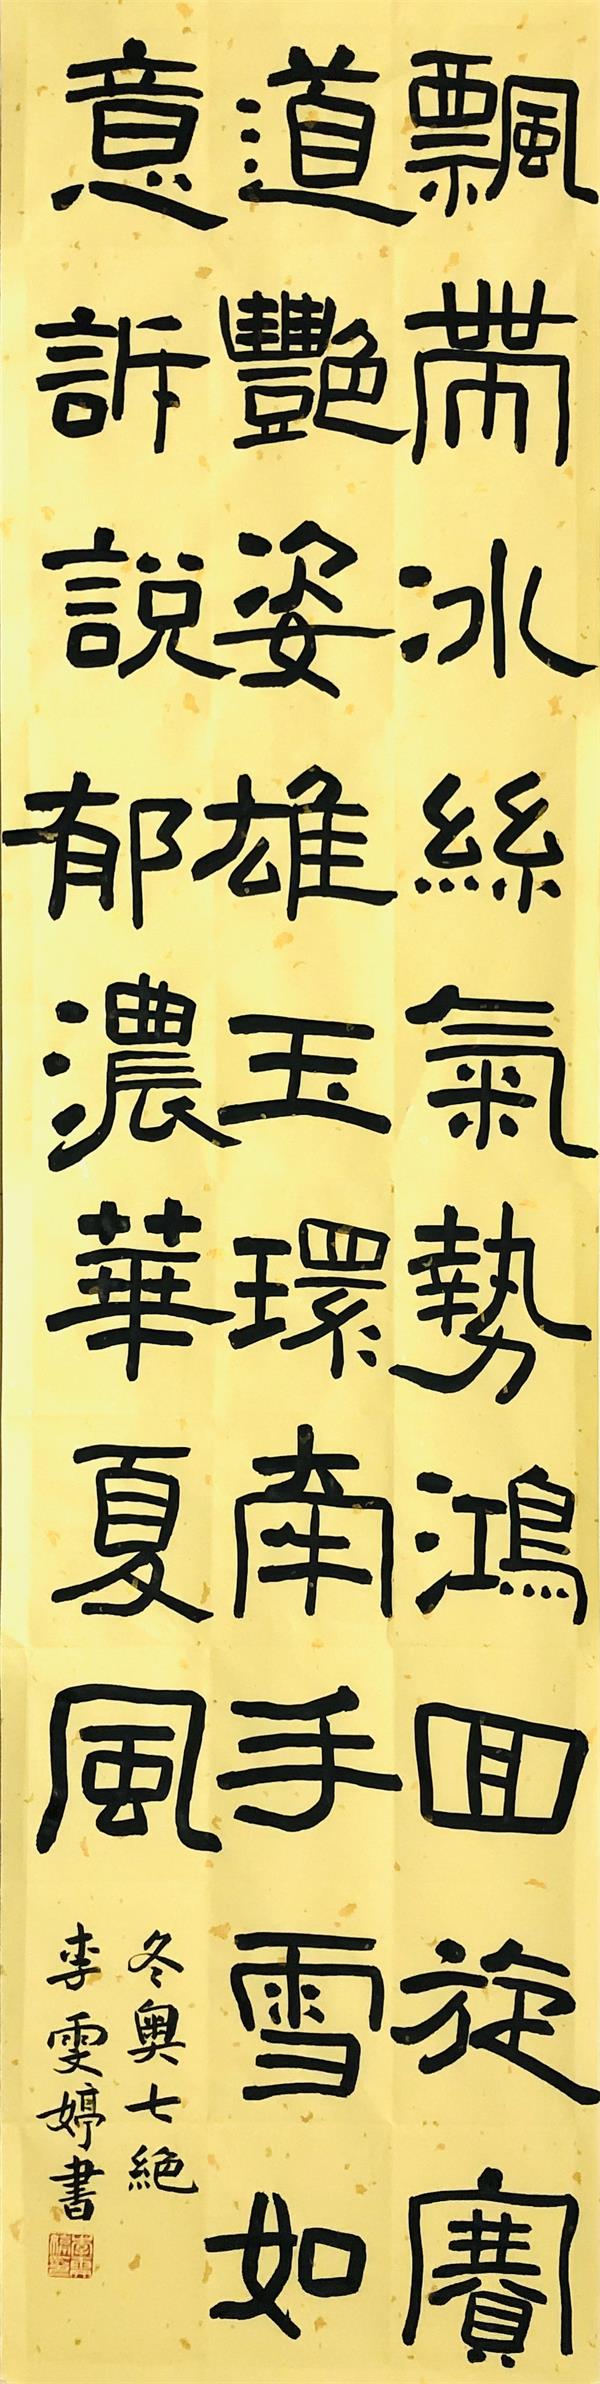 飄帶冰絲氣勢鴻回旋賽
道艷姿雄玉環南手雪如
意訴説郁濃華夏風
冬奧七絕
李雯婷書